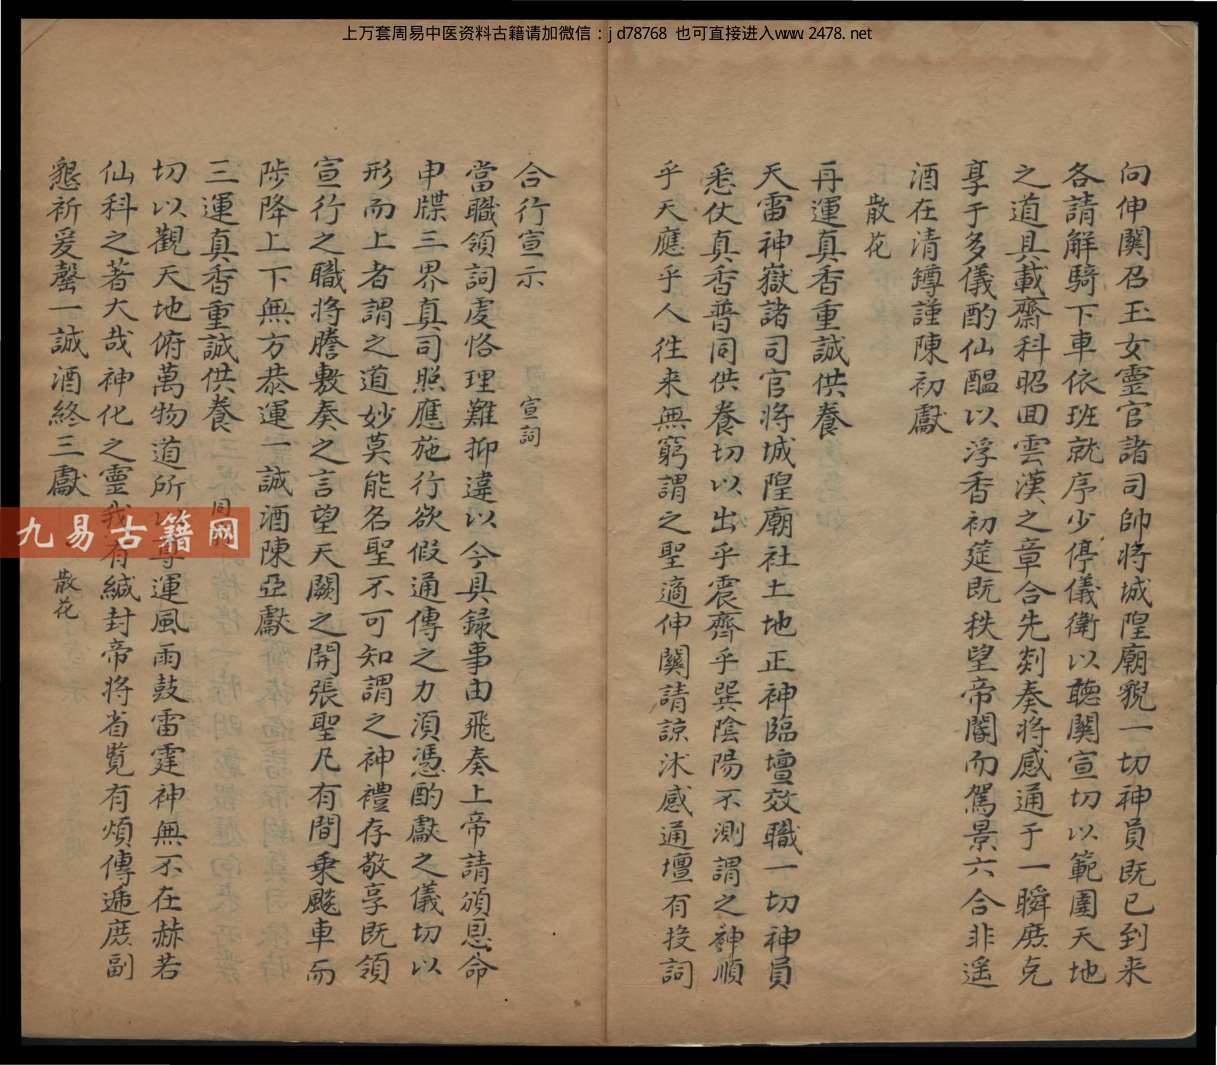 上万套周易中医资料古籍请加微信：jd78768 也可直接进入www.2478.net
向伸闗召玉女靈官諸司帥將城隍廟貎一切神員既已到来
各請解騎下車依班就序少停儀衛以聴闗宣切以範圍天地
之道具載齋科昭回雲漢之章合先剡奏將感通于一瞬庻克
享于多儀酌仙醖以浮香初筵既秩望帝閽而駕景六合非遥
酒在清罇謹陳初獻
散花
再運真香重誠供養
天雷神嶽諸司官將城隍廟社土地正神臨壇效職一切神員
悉仗真香普同供養切以出乎震齊乎巽陰陽不測謂之神順
乎天應乎人徃来無窮謂之聖適伸闗請諒沐感通壇有投詞
合行宣示
宣詞
當職領詞虔恪理難抑違以今具録事由飛奏上帝請頒恩命
申牒三界真司照應施行欲假通傳之力湏憑酌獻之儀切以
形而上者謂之道妙莫能名聖不可知謂之神禮存敬享既領
宣行之職將謄敷奏之言望天闕之開張聖凡有間乗飈車而
陟降上下無方恭運一誠酒陳亞獻
三運真香重誠供養
同前
切以觀天地俯萬物道所以尊運風雨鼓雷霆神無不在赫若
仙科之著大哉神化之靈我有緘封帝將省覧有煩傳遞庻副
懇祈爰罄一誠酒終三獻
散花
九易古籍网